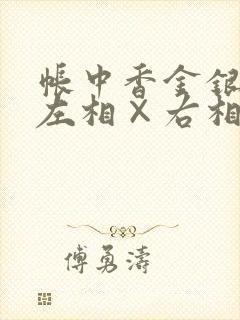 帐中香金银
左相×右相
傅勇涛